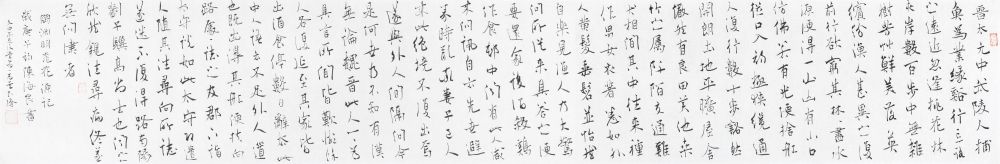 晉太元中武陵人捕
魚為業緣谿行忘路
之遠近忽逢桃花林
夾岸數百步中無雜
樹芳草鮮美落英
繽紛漁人甚異之復
前行欲窮其林林盡水
源便得一山山有小口
仿佛若有光便捨船
從口入初極狹纔通
人復行數十步豁然
開朗土地平曠屋舍
儼然有良田美池桑
竹之屬阡陌交通雞
犬相聞其中往來種
作男女衣著悉如外
人黃髮垂髫並怡然
自樂見漁人乃大驚
問所從來具答之便
要還家設酒殺雞
作食邨中聞有此人咸
來問訊自云先世避
秦時亂率妻子邑人
來此絕境不復出焉
遂與外人間隔問今
是何世乃不知有漢
無論魏晉此人一一為
具言所聞皆歎惋餘
人各復延至其家皆
出酒食停數日辭去此
中人語云不足為外人道
也既出得其船便扶向
路處處誌之及郡下詣
太守說如此太守即遣
人隨其往尋向所誌
遂迷不復得路南陽
劉子驥高尚士也聞之
欣然規往尋病終遂
無問津者
陶淵明桃花源記
歲庚子